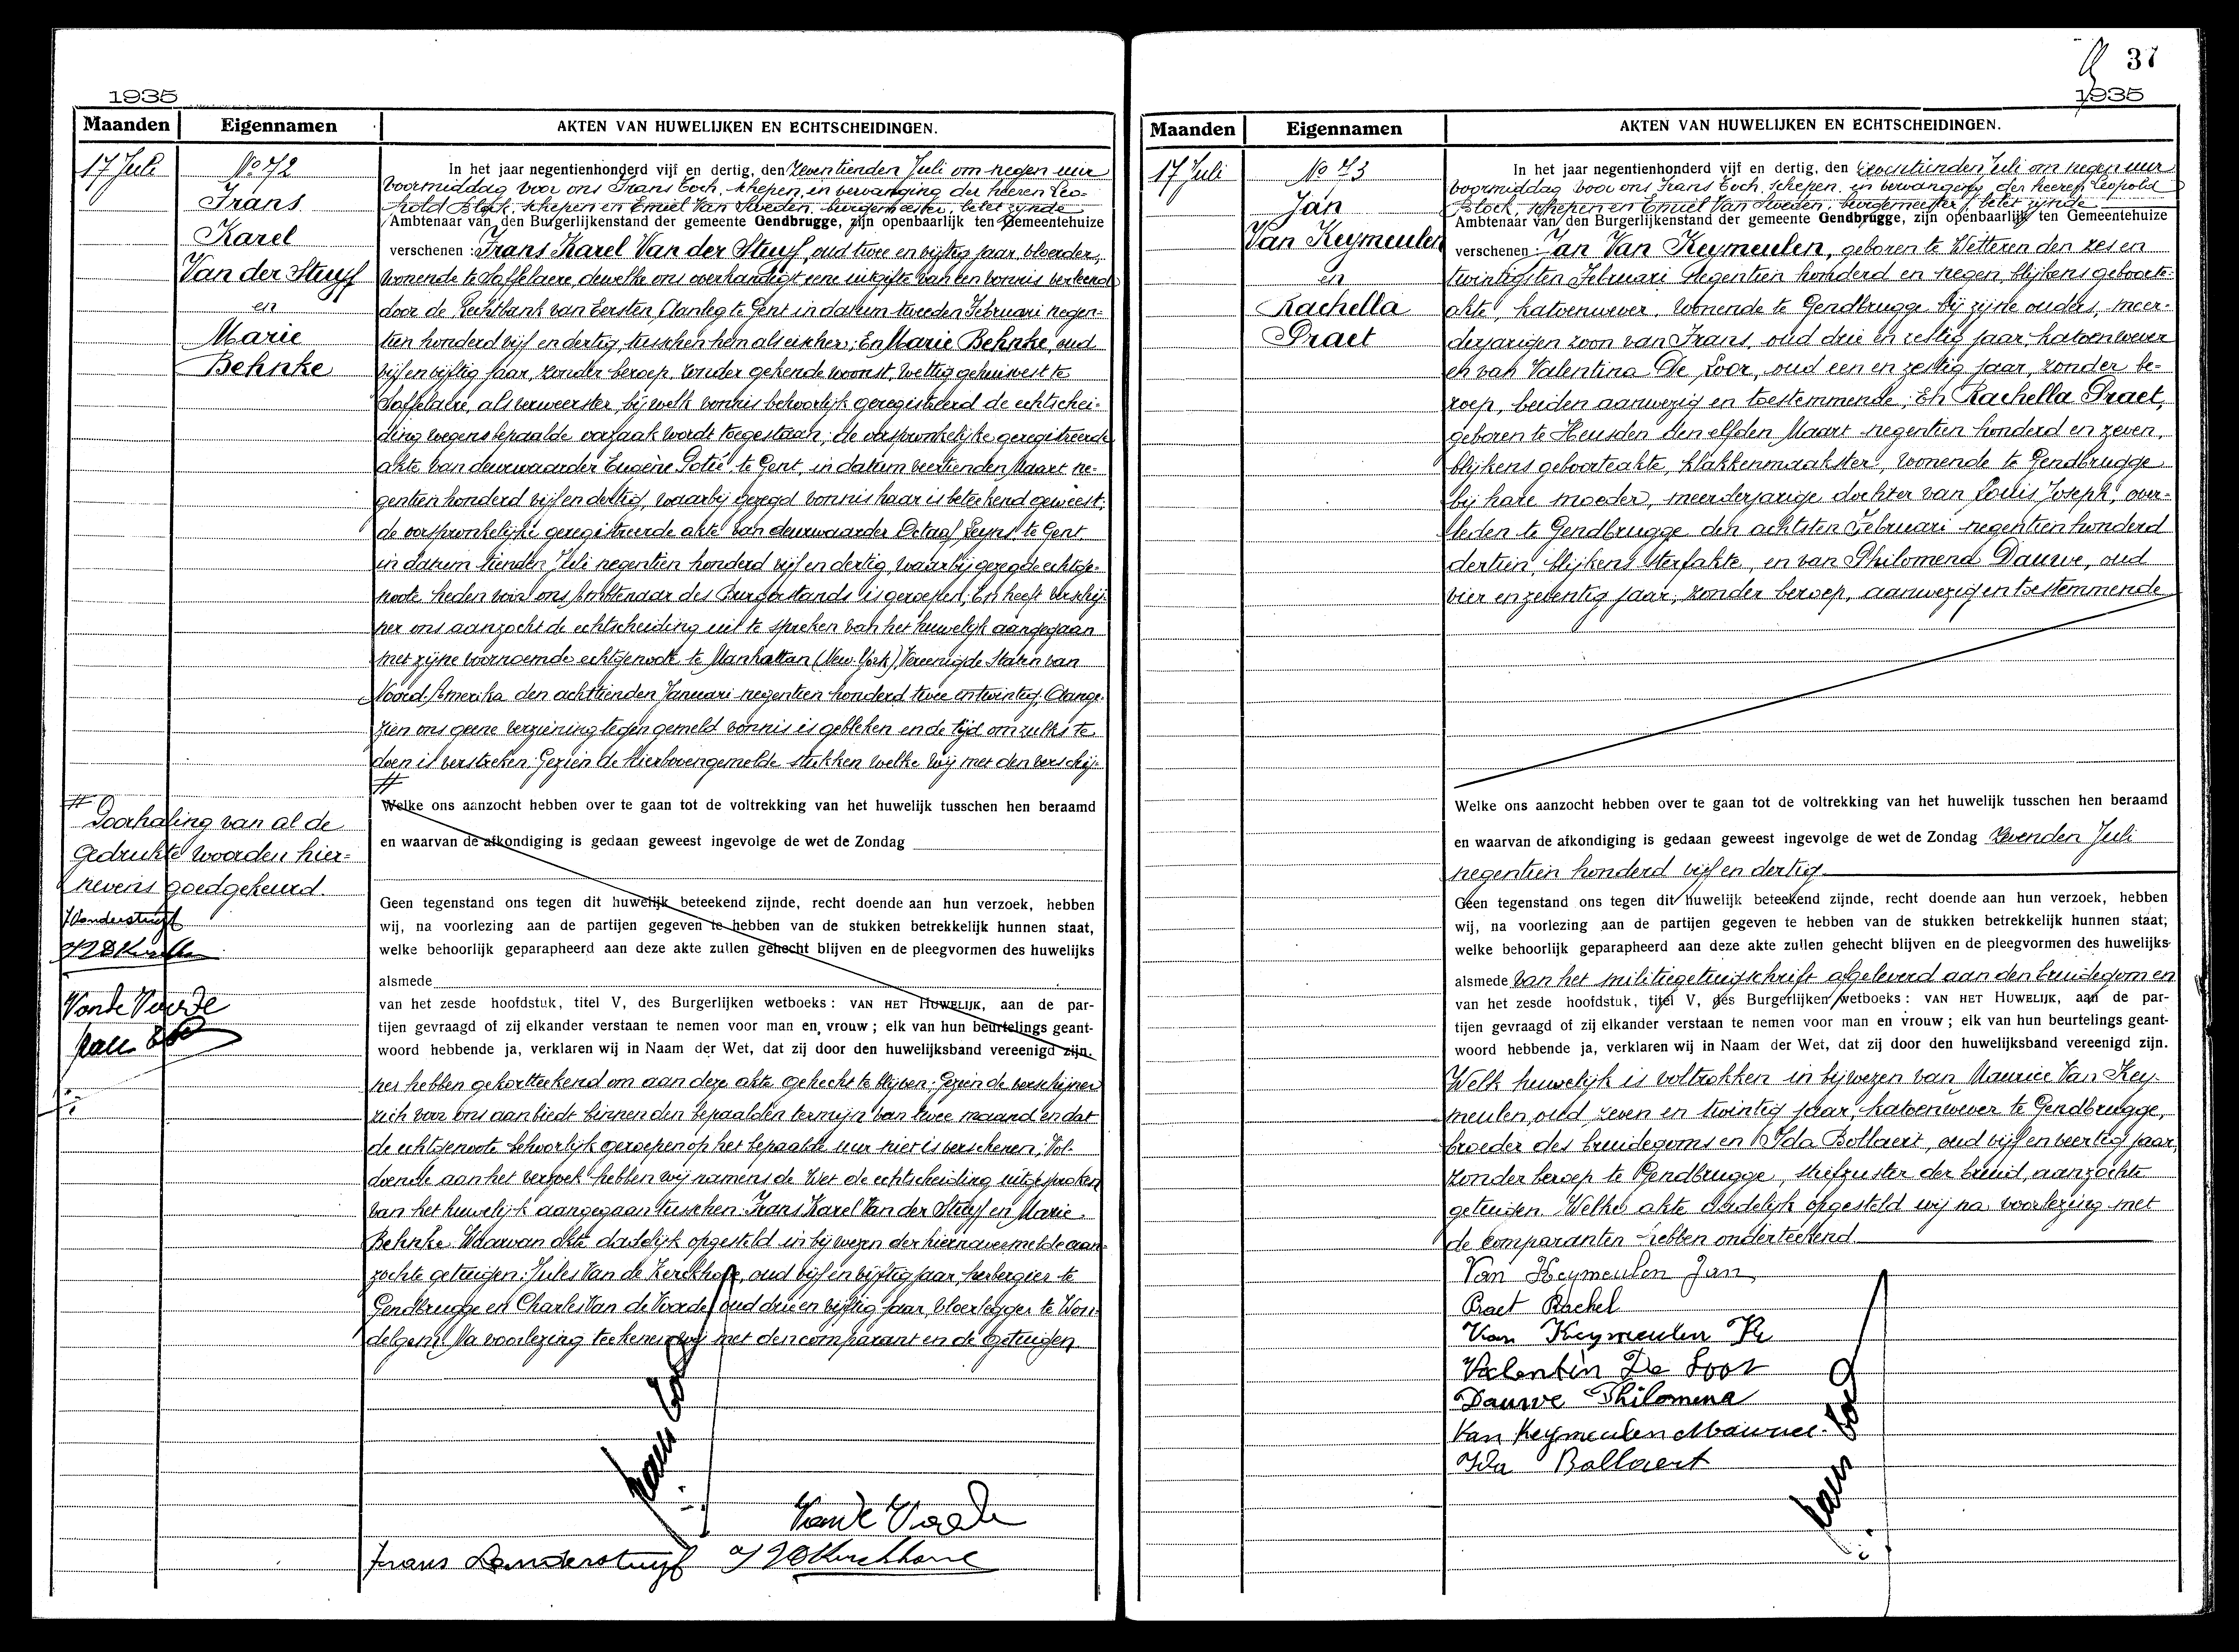 1935
Maanden
Eigennamen
AKTEN VAN HUWELIJKEN EN ECHTSCHEIDINGEN.
17 Juli
No 72
Frans
Karel
Van der Stuyf
en
Marie
Behnke
In het jaar negentienhonderd vijf en dertig, den Zeventienden Juli om negen uur
voormiddag voor ons Frans Coch, schepen, in vervanging der heeren Leo-
pold Block, schepen en Emiel Van Sweden, burgemeester, belet zijnde
Ambtenaar van den Burgerlijkenstand der gemeente Gendbrugge, zijn openbaarlijk ten Gemeentehuize
verschenen : Frans Karel Van der Stuyf, oud twee en vijftig jaar, vloerder,
wonende te Saffelaere, dewelke ons overhandigt eene uitgifte van een vonnis verleend
door de Rechtbank van Eersten Aanleg te Gent in datum tweeden Februari negen-
tien honderd vijf en dertig, tusschen hem als eischer; En Marie Behnke, oud
vijf en vijftig jaar, zonder beroep, zonder gekende woonst, wettig gehuisvest te
Saffelaere, als verweerster, bij welk vonnis behoorlijk geregistreerd de echtschei-
ding wegens bepaalde oorzaak wordt toegestaan; de oorspronkelijke geregistreerde
akte van deurwaarder Eugène Potié te Gent, in datum veertienden Maart ne-
gentien honderd vijf en dertig, waarbij gezegd vonnis haar is beteekend geweest;
de oorspronkelijke geregistreerde akte van deurwaarder Octaaf Leyns te Gent
in datum tienden Juli negentien honderd vijf en dertig, waarbij gezegde echtge-
noote heden voor ons Ambtenaar des Burgerstands is geroepen; En heeft verschij-
ner ons aanzocht de echtscheiding uit te spreken van het huwelijk aangegaan
met zijne voornoemde echtgenoote te Manhattan (New-York), Vereenigde Staten van
Noord-Amerika den achttienden Januari negentien honderd twee en twintig; Aange-
zien ons geene verziening tegen gemeld vonnis is gebleken en de tijd om zulks te
doen is verstreken; Gezien de hierbovengemelde stukken welke wij met den verschij-
#
# Doorhaling van al de
gedrukte woorden hier-
nevens goedgekeurd.
F Vanderstuyf
Van de Voorde
Welke ons aanzocht hebben over te gaan tot de voltrekking van het huwelijk tusschen hen beraamd
en waarvan de afkondiging is gedaan geweest ingevolge de wet de Zondag
Geen tegenstand ons tegen dit huwelijk beteekend zijnde, recht doende aan hun verzoek, hebben
wij, na voorlezing aan de partijen gegeven te hebben van de stukken betrekkelijk hunnen staat,
welke behoorlijk geparapheerd aan deze akte zullen gehecht blijven en de pleegvormen des huwelijks
alsmede
van het zesde hoofdstuk, titel V, des Burgerlijken wetboeks : VAN HET HUWELIJK, aan de par-
tijen gevraagd of zij elkander verstaan te nemen voor man en vrouw ; elk van hun beurtelings geant-
woord hebbende ja, verklaren wij in Naam der Wet, dat zij door den huwelijksband vereenigd zijn.
ner hebben gekortteekend om aan deze akte gehecht te blijven; Gezien de verschijner
zich voor ons aanbiedt binnen den bepaalden termijn van twee maand en dat
de echtgenoote behoorlijk geroepen op het bepaalde uur niet is verschenen; Vol-
doende aan het verzoek hebben wij namens de Wet de echtscheiding uitgesproken
van het huwelijk aangegaan tusschen: Frans Karel Van der Stuyf en Marie
Behnke. Waarvan akte dadelijk opgesteld in bijwezen der hiernavermelde aan-
zochte getuigen: Jules Van de Kerckhove, oud vijf en vijftig jaar, herbergier te
Gendbrugge en Charles Van de Voorde, oud drie en vijftig jaar, vloerlegger te Won-
delgem. Na voorlezing teekenen wij met den comparant en de getuigen
Frans Coch
Van de Voorde
Frans Vanderstuyf
J VDKerckhove
37
1935
Maanden
Eigennamen
AKTEN VAN HUWELIJKEN EN ECHTSCHEIDINGEN.
17 Juli
No 73
Jan
Van Keymeulen
en
Rachella
Praet
In het jaar negentienhonderd vijf en dertig, den Zeventienden Juli om negen uur
voormiddag voor ons Frans Coch, schepen, in vervanging der heeren Leopold
Block, schepen en Emiel Van Sweden, burgemeester, belet zijnde
Ambtenaar van den Burgerlijkenstand der gemeente Gendbrugge, zijn openbaarlijk ten Gemeentehuize
verschenen : Jan Van Keymeulen, geboren te Wetteren den zes en
twintigsten Februari negentien honderd en negen, blijkens geboorte-
akte, katoenwever, wonende te Gendbrugge bij zijne ouders, meer-
derjarigen zoon van Frans, oud drie en zestig jaar, katoenwever
en van Valentina De Loor, oud een en zestig jaar, zonder be-
roep, beiden aanwezig en toestemmende; En Rachella Praet,
geboren te Heusden den elfden Maart negentien honderd en zeven,
blijkens geboorteakte, klakkenmaakster, wonende te Gendbrugge
bij hare moeder, meerderjarige dochter van Louis Joseph, over-
leden te Gendbrugge den achtsten Februari negentien honderd
dertien, blijkens sterfakte, en van Philomena Dauwe, oud
vier en zeventig jaar, zonder beroep, aanwezig en toestemmende
Welke ons aanzocht hebben over te gaan tot de voltrekking van het huwelijk tusschen hen beraamd
en waarvan de afkondiging is gedaan geweest ingevolge de wet de Zondag zevenden Juli
negentien honderd vijf en dertig
Geen tegenstand ons tegen dit huwelijk beteekend zijnde, recht doende aan hun verzoek, hebben
wij, na voorlezing aan de partijen gegeven te hebben van de stukken betrekkelijk hunnen staat;
welke behoorlijk geparapheerd aan deze akte zullen gehecht blijven en de pleegvormen des huwelijks
alsmede van het militiegetuigschrift afgeleverd aan den bruidegom en
van het zesde hoofdstuk, titel V, des Burgerlijken wetboeks : VAN HET HUWELIJK, aan de par-
tijen gevraagd of zij elkander verstaan te nemen voor man en vrouw ; elk van hun beurtelings geant-
woord hebbende ja, verklaren wij in Naam der Wet, dat zij door den huwelijksband vereenigd zijn.
Welk huwelijk is voltrokken in bijwezen van Maurice Van Key-
meulen, oud zeven en twintig jaar, katoenwever te Gendbrugge,
broeder des bruidegoms en Ida Bollaert, oud vijf en veertig jaar,
zonder beroep te Gendbrugge, stiefzuster der bruid, aanzochte
getuigen. Welke akte dadelijk opgesteld wij na voorlezing met
de comparanten hebben onderteekend
Van Keymeulen Jan
Praet Rachel
Van Keymeulen Fr
Valentin De Loor
Dauwe Philomena
Van Keymeulen Maurice
Ida Bollaert
Frans Coch